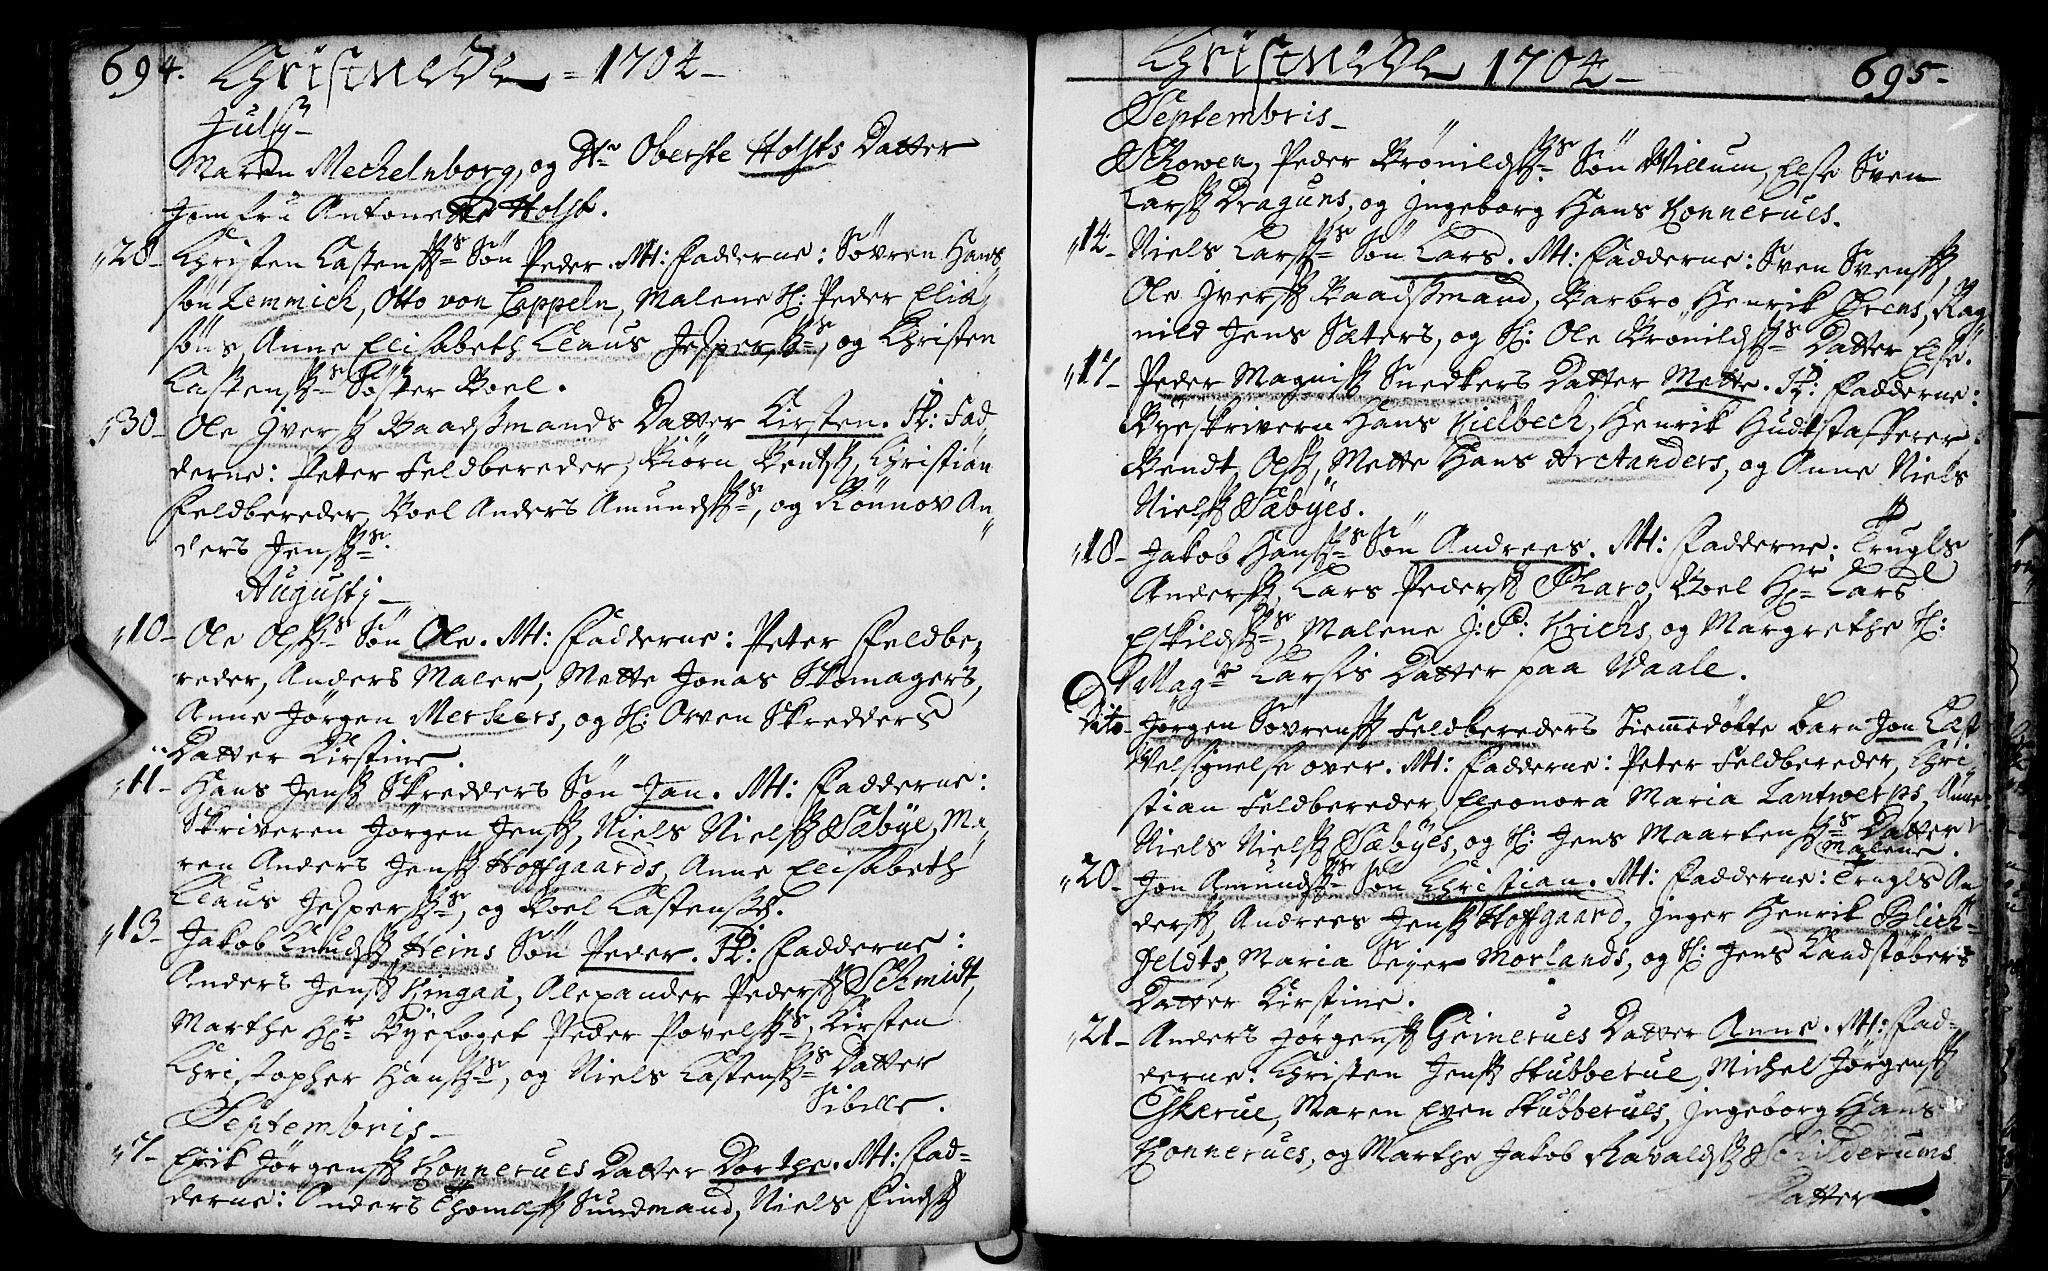 694. Christnede - 1704 -
July -
Maren Mechelnborg, og Hr Oberste Holsts Datter
Jomfru Antonette Holst.
28 - Christen Lastenss. Søn Peder. M: Fadderne: Søvren Hans
søn Lemmich, Otto von Cappeln, Malene H: Peder Elia
søns, Anne Elisabeth Claus Jesperss., og Christen
Lastenss. Søster Boel.
30 - Ole Iverss. Baadsmands Datter Kirsten. H: Fad
derne: Peter Feldbereder, Biørn Bentss., Christian
Feldbereder, Boel Anders Amundss., og Rønnov An
ders Jenss.
Augusti -
10 - Ole Olss. Søn Ole. M: Fadderne: Peter Feldbe
reder, Anders Maler, Mette Jonas Skomagers,
Anne Jørgen Merkers, og H: Arven Skredders
Datter Kirstine.
11 - Hans Jenss. Skredders Søn Jan. M: Fadderne:
Skriveren Jørgen Jenss., Niels Nielss. Sæbye, Ma
ren Anders Jenss. Hoffgaards, Anne Elisabeth
Claus Jesperss., og Boel Lastenss.
13 - Jakob Knudss. Heins Søn Peder. H: Fadderne:
Anders Jenss. Kingaa, Alexander Pederss. Schmidt,
Marthe Hr Byefoget Peder Povelss., Kirsten
Christopher Hanss., og Niels Lastenss. Datter
Sibille.
Septembris -
7 - Erik Jørgenss. Konnerues Datter Dorthe. M: Fad=
derne: Anders Thomass. Sundmand, Niels Findss.
Christnede 1704 - 695 -
Septembris -
Skowen, Peder Brønildss. Søn Willum, Else Sven
Larss. Draguns, og Ingeborg Hans Konnerues.
14 - Niels Larss. Søn Lars. M: Fadderne: Sven Svenss.,
Ole Iverss. Baadsmand, Barbro Henrik Ørens, Rag
nild Jens Sæters, og H: Ole Brønildss. Datter Else.
17 - Peder Magniss. Snedkers Datter Mette. H: Fadderne:
Byeskrivern Hans Kielbech, Henrik Hudtstafferer,
Bendt Olss., Mette Hans Arctanders, og Anne Niels
Nielss. Sæbyes.
18 - Jakob Hanss. Søn Andreas. M: Fadderne: Trugls
Anderss., Lars Pederss. Pharo, Boel Hr Lars
Eskildss., Malene J: P: Krichs, og Margrethe H:
Magr Larsis Datter paa Waale.
Dito - Jørgen Søvrenss. Feldbereders hiemmedøbte barn Jon Læst
Velsignelse over. M: Fadderne: Peter Feldbereder, Chri
stian Feldbereder, Eleonora Maria Lantwerps, Anne
Niels Nielss. Sæbyes, og H: Jens Maartenss. Datter
Malene.
20 - Jon Amundss. Søn Christian. M: Fadderne: Trugls An
derss., Andreas Jenss. Hoffgaard, Inger Henrik Blich=
feldts, Maria Seyer Morlands, og H: Jens Kandstøbers
Datter Kirstine.
21 - Anders Jørgenss. Grinerues Datter Anne. M: Fad=
derne: Christen Jenss. Stubberue, Michel Jørgenss.
Eskerue, Maren Even Stubberues, Ingeborg Hans
Konnerues, og Marthe Jakob Ravaldss. Schilderums
Datter.